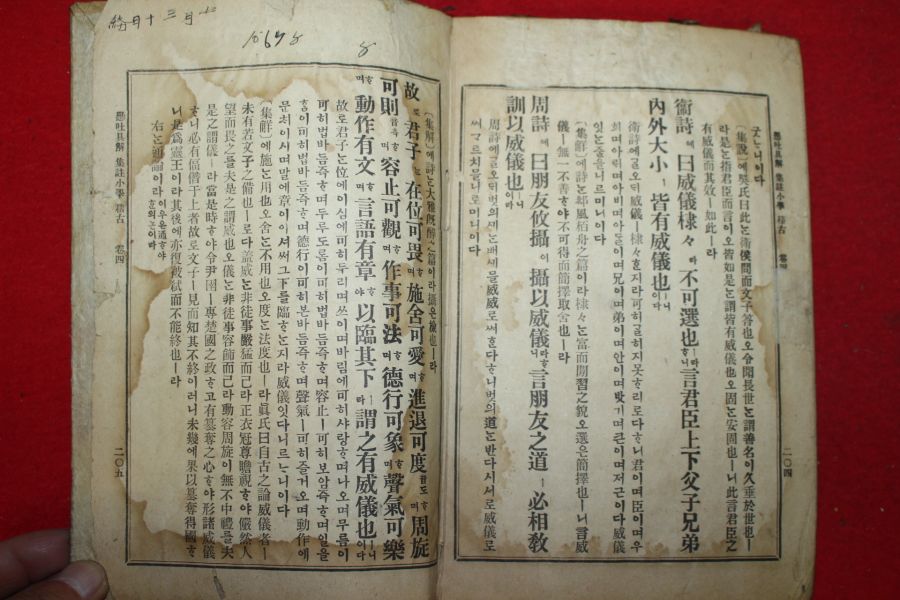 懸吐具解 集註小學 稽古 卷四
二〇四
굿ᄒᆞ니이다
(集說)에吳氏曰此ᄂᆞᆫ衛侯問而文子答也오令聞長世ᄂᆞᆫ謂善名이久垂於世也ㅣ
라是ᄂᆞᆫ指君臣而言이오皆如是ᄂᆞᆫ謂皆有威儀也오固ᄂᆞᆫ安固也ㅣ니此ᄂᆞᆫ言君臣之
有威儀而其效ㅣ如此ㅣ라
衞詩에曰威儀棣々라不可選也ㅣ라ᄒᆞ니言君臣上下父子兄弟
內外大小ㅣ皆有威儀也ㅣ니이다
衞詩에ᄀᆞᆯ오ᄃᆡ威儀ㅣ棣々ᄒᆞᆫ지라可히ᄀᆞᆯ히지못ᄒᆞ리로다ᄒᆞ니君이며臣이며우
희며아ᄅᆡ며아비며아ᄃᆞᆯ이며兄이며弟며안이며밧기며큰이며져근이다威儀
잇ᄂᆞᆫ줄을니르미니이다
(集解)에詩ᄂᆞᆫ邶風柏舟之篇이라棣々ᄂᆞᆫ富而閒習之貌오選은簡擇也ㅣ니言威
儀ㅣ無一不善ᄒᆞ야不可得而簡擇取舍也ㅣ라
周詩에曰朋友攸攝이攝以威儀라ᄒᆞ니言朋友之道ㅣ必相敎
訓以威儀也ㅣ니이다
周詩에ᄀᆞᆯ오ᄃᆡ벗의
써ᄀᆞ르치믈니로미니이다
懸吐具解 集註小學 稽古 卷四
二〇五
(集解)에詩ᄂᆞᆫ大雅旣醉之篇이라攝은檢也ㅣ라
故로君子ᄂᆞᆫ在位可畏ᄒᆞ며施舍可愛ᄒᆞ며進退可度ᄒᆞ며周旋
可則ᄒᆞ며容止可觀ᄒᆞ며作事可法ᄒᆞ며德行可象ᄒᆞ며聲氣可樂
ᄒᆞ며動作有文ᄒᆞ며言語有章ᄒᆞ야以臨其下ㅣ라謂之有威儀也ㅣ니이다
故로君子ᄂᆞᆫ位에이심에可히두리며쓰이며바림에可히사랑ᄒᆞ며나오며무름이
可히법바듬즉ᄒᆞ며두루도롬이可히법바듬즉ᄒᆞ며容止ㅣ可히보암즉ᄒᆞ며일을
ᄒᆞᆷ이可히법바듬즉ᄒᆞ며德行이可히본바듬즉ᄒᆞ며聲氣ㅣ可히즐거오며動作에
문치이시며말에章이이셔써그下를臨ᄒᆞᄂᆞᆫ지라威儀잇다니르ᄂᆞ니이다
(集解)에施ᄂᆞᆫ用也오舍ᄂᆞᆫ不用也오度ᄂᆞᆫ法度也ㅣ라眞氏曰自古之論威儀者ㅣ
未有若文子之備也ㅣ로다蓋威ᄂᆞᆫ非徒事嚴猛而已라正衣冠尊瞻視ᄒᆞ야儼然人
望而畏之를夫是之謂威也오儀ᄂᆞᆫ非徒事容飾而已라動容周旋이無不中禮를夫
是之謂儀ㅣ라當是時ᄒᆞ야令尹圍ㅣ專楚國之政ᄒᆞ고有簒奪之心ᄒᆞ야形諸威儀
ᄒᆞ니必有偪僭于上者故로文子ㅣ一見而知其不終이러니未幾에果以簒奪得國ᄒᆞ
니是爲靈王이라其後에亦復被弑而不能終也ㅣ라
右ᄂᆞᆫ通論이라